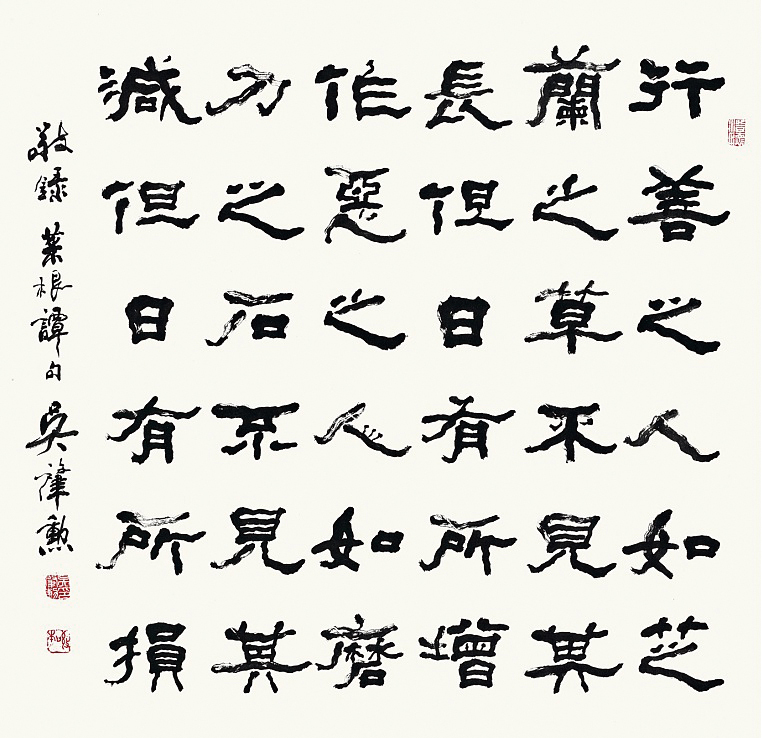 行善之人如芝
蘭之草不見其
長但日有所增
作惡之人如磨
刀之石不見其
減但日有所損
敬録菜根譚句 吳 勳